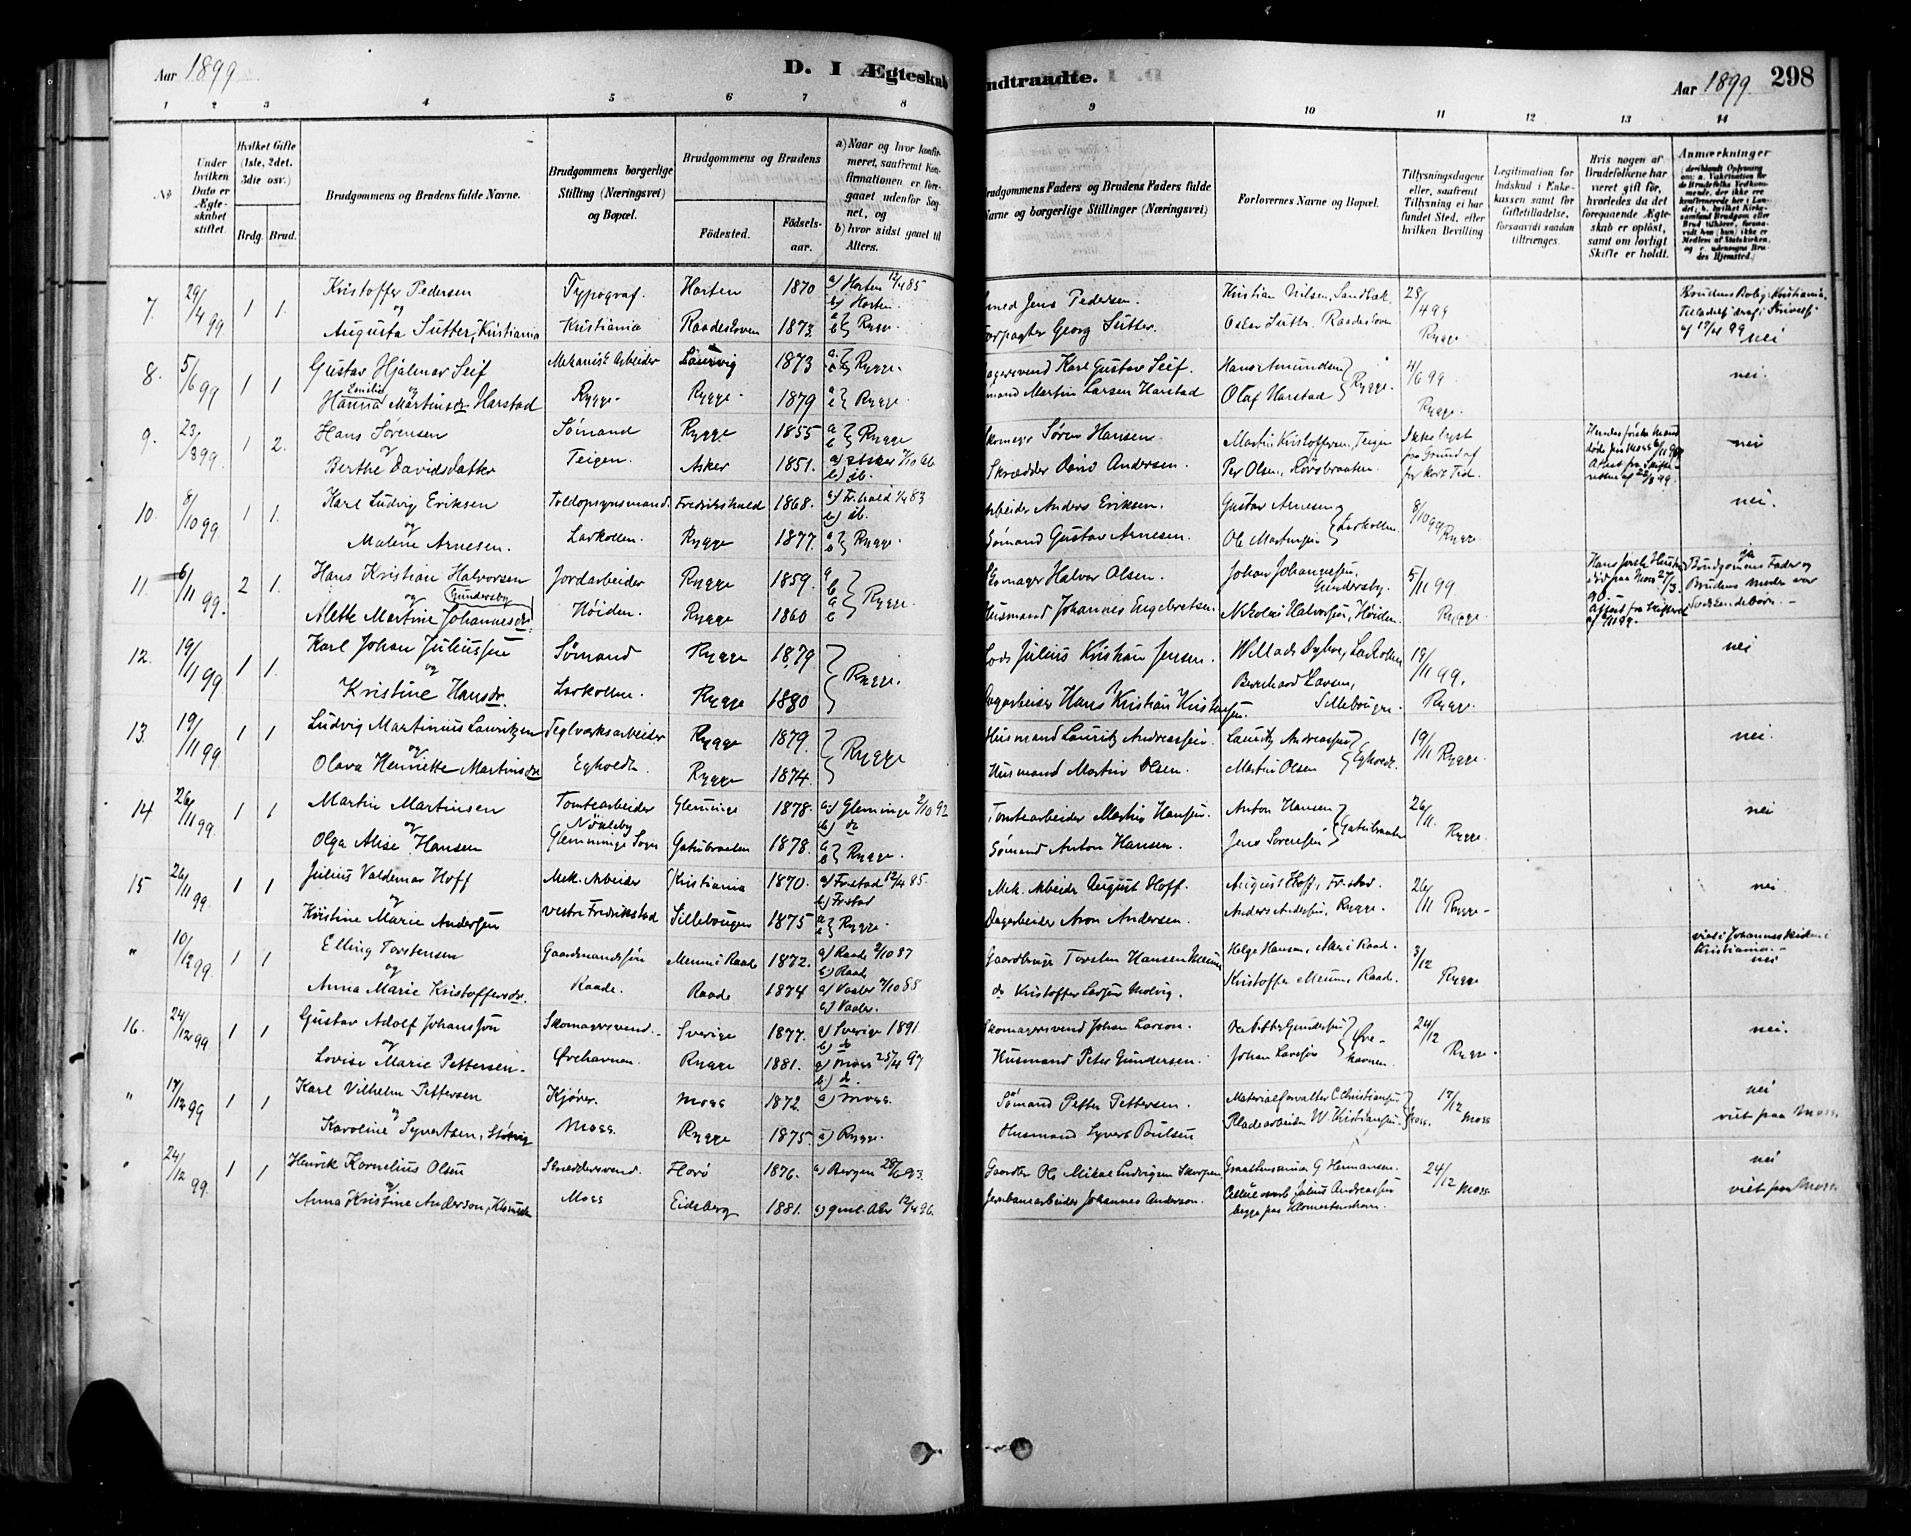 Aar 1899
D. I Ægteskab
ndtraadte.
Aar 1899. 298
1 2 3 4 5 6 7 8 9 10 11 12 13 14
No
Under hvilken Dato er Ægteskabet stiftet.
Hvilket Gifte (1ste, 2det, 3die osv.)
Brdg. Brud.
Brudgommens og Brudens fulde Navne.
Brudgommens borgerlige Stilling (Næringsvei) og Bopæl.
Brudgommens og Brudens
Fødested. Fødselsaar.
a) Naar og hvor konfirmeret, saafremt Konfirmationen er foregaaet udenfor Sognet, og
b) hvor sidst gaaet til Alters.
rudgommens Faders og Brudens Faders fulde
Navne og borgerlige Stillinger (Næringsvei)
Forlovernes Navne og Bopæl.
Tillysningsdagene eller, saafremt Tillysning ei har fundet Sted, efter hvilken Bevilling
Legitimation for Indskud i Enkekassen samt for Giftetilladelse, forsaavidt saadan tiltrænges.
Hvis nogen af Brudefolkene har været gift før, hvorledes da det foregaaende Ægteskab er opløst, samt om lovligt Skifte er holdt.
Anmærkninger
7. 29/4 99 1 1. Kristoffer Pedersen Typograf. Horten 1870 a) Horten 12/4 85 Jens Pedersen. Kristian Nilsen, Sandbæk 28/4 99
og b) Horten.
Augusta Sutter, Kristiania Kristiania Raadesloven 1873. a b } Rygge. Georg Sutter. Oscar Sutter Raadesloven Rygge nei
8. 5/6 99 1 1 Gustav Hjalmar Seif Mekanisk Arbeider Laurvig 1873 Rygge. Karl Gustav Seif. Hans Amundsen } Rygge 4/6 99 nei.
Emilie og
Hanna Martinsdr Harstad Rygge. Rygge. 1879 Rygge. Martin Larsen Harstad Olaf Harstad Rygge.
9. 23/8 99 1 2. Hans Sørensen Sømand Rygge 1855 a b } Rygge Skomager Søren Hansen. Martin Kristoffersen, Teigen Ikke lyst nei
og
Berthe Davidsdatter Teigen. Asker 1851. a) Asker 7/10 66 b) do. Skrædder David Andersen. Per Olsen, paa Grund af for kort Tid.
10. 8/10 99 1 1. Karl Ludvig Eriksen Toldopsynsmand. Fredrikshald 1868. a) Frhald 1/4 83 b) do. Arbeider Anders Eriksen. Gustav Arnesen 8/10 99 Rygge nei.
og
Maline Arnesen. Larkollen. Rygge 1877. a b } Rygge. Sømand Gustav Arnesen. Ole Martinsen } Larkollen
11. 6/11 99. 2 1. Hans Kristian Halvorsen Jordarbeider Rygge 1859. a b a b } Rygge Skomager Halvor Olsen. Johan Johannesen Gundersby 5/11 99. ja
og Gundersby Brudgommens Fader og Brudens moder var Søskendebørn.
Alette Martine Johannesdr. Høiden. Rygge 1860 Husmand Johannes Engebretsen Nikolai Halvorsen, Høiden. Rygge.
12. 19/11 99 1 1. Karl Johan Juliussen Sømand Rygge 1879 } Rygge. Lods Julius Kristian Jensen. Willads Larkollen 19/11 99. nei
og
Kristine Hansdr. Larkollen. Rygge 1880 Dagarbeider Hans Kristian Kristensen. Bernhard Larsen, Sillebougen. Rygge.
13. 19/11 99 1 1 Ludvig Martinus Lauritzen Teglværksarbeider Rygge 1879. } Rygge Husmand Lauritz Andreassen. Lauritz Andreassen 19/11 Rygge. nei.
og
Olava Henriette Martinsdr Egholdt. Rygge 1874. Husmand Martin Olsen. Martin Olsen } Egholdt.
14 26/11 99. 1 1 Martin Martinsen Tomtearbeider Glemminge 1878. a) Glemminge 2/10 92 b) do Tomtearbeider Martin Hansen. Anton Hansen 26/11. nei
og Nøkleby
Olga Alise Hansen Glemminge Sogn Gatubraaten 1878. a b } Rygge. Sømand Anton Hansen. Jens Sørensen } Gatubraaten Rygge.
15 26/11 99. 1 1 Julius Valdemar Hoff Mek. Arbeider Kristiania 1870. a) Frstad 12/4 85. b) Frstad Mek. Arbeider August Hoff. August Hoff, Fr.stad. 26/11 Rygge. nei
og
Kristine Marie Andersen vestre Fredrikstad Sillebougen 1875 a b } Rygge. Dagarbeider Aron Andersen. Anders Andersen, Rygge.
" 10/12 99. 1 1 Elling Torstensen Gaardmandssøn Meum i Raade 1872. a) Raade 2/10 87 b) Raade Gaardbruger Torsten Hansen Meum Helge Hansen, i Raade 3/12 viet i Johanneskirken i Kristiania. nei
og
Anna Marie Kristoffersdr. Raade. Raade 1874 a) Vaaler 7/10 88 b) Vaaler. do Kristoffer Larsen Molvig. Kristoffer Meum, Raade. Rygge
16. 24/12 99 1 1 Gustav Adolf Johansson Skomagersvend. Sverige 1877. a) Sverige 1891 b) do Skomagersvend Johan Larson. Gundersen 24/12 nei.
og
Lovise Marie Pettersen. Ørehavnen. Rygge 1881. a) Moss 25/4 97 b) do. Husmand Peter Gundersen. Johan Larsen } Ørehavnen Rygge.
" 17/12 99 1 1 Karl Vilhelm Pettersen Kjører. Moss 1872. a) Moss. Sømand Petter Pettersen. Materialforvalter C. Christiansen 17/12 Moss nei
og viet paa Moss
Karoline Syvertsen, Moss. Rygge 1875. a) Rygge. Husmand Syvert Poulsen Pladearbeider W. Kristiansen } Moss.
" 24/12 99. 1 1 Henrik Kornelius Olsen Skræddersvend. Florø 1876. a) Bergen 28/6 93. Gaardbr Ole Mikal Ludvigsen Skorpen. G Hermansen. 24/12 Moss. nei
og viet paa Moss
Anna Kristine Anderson, Moss Eidsberg 1881. a) gml. Aker 12/4 96. Jernbanearbeider Johannes Anderson. Julius Andreassen begge paa